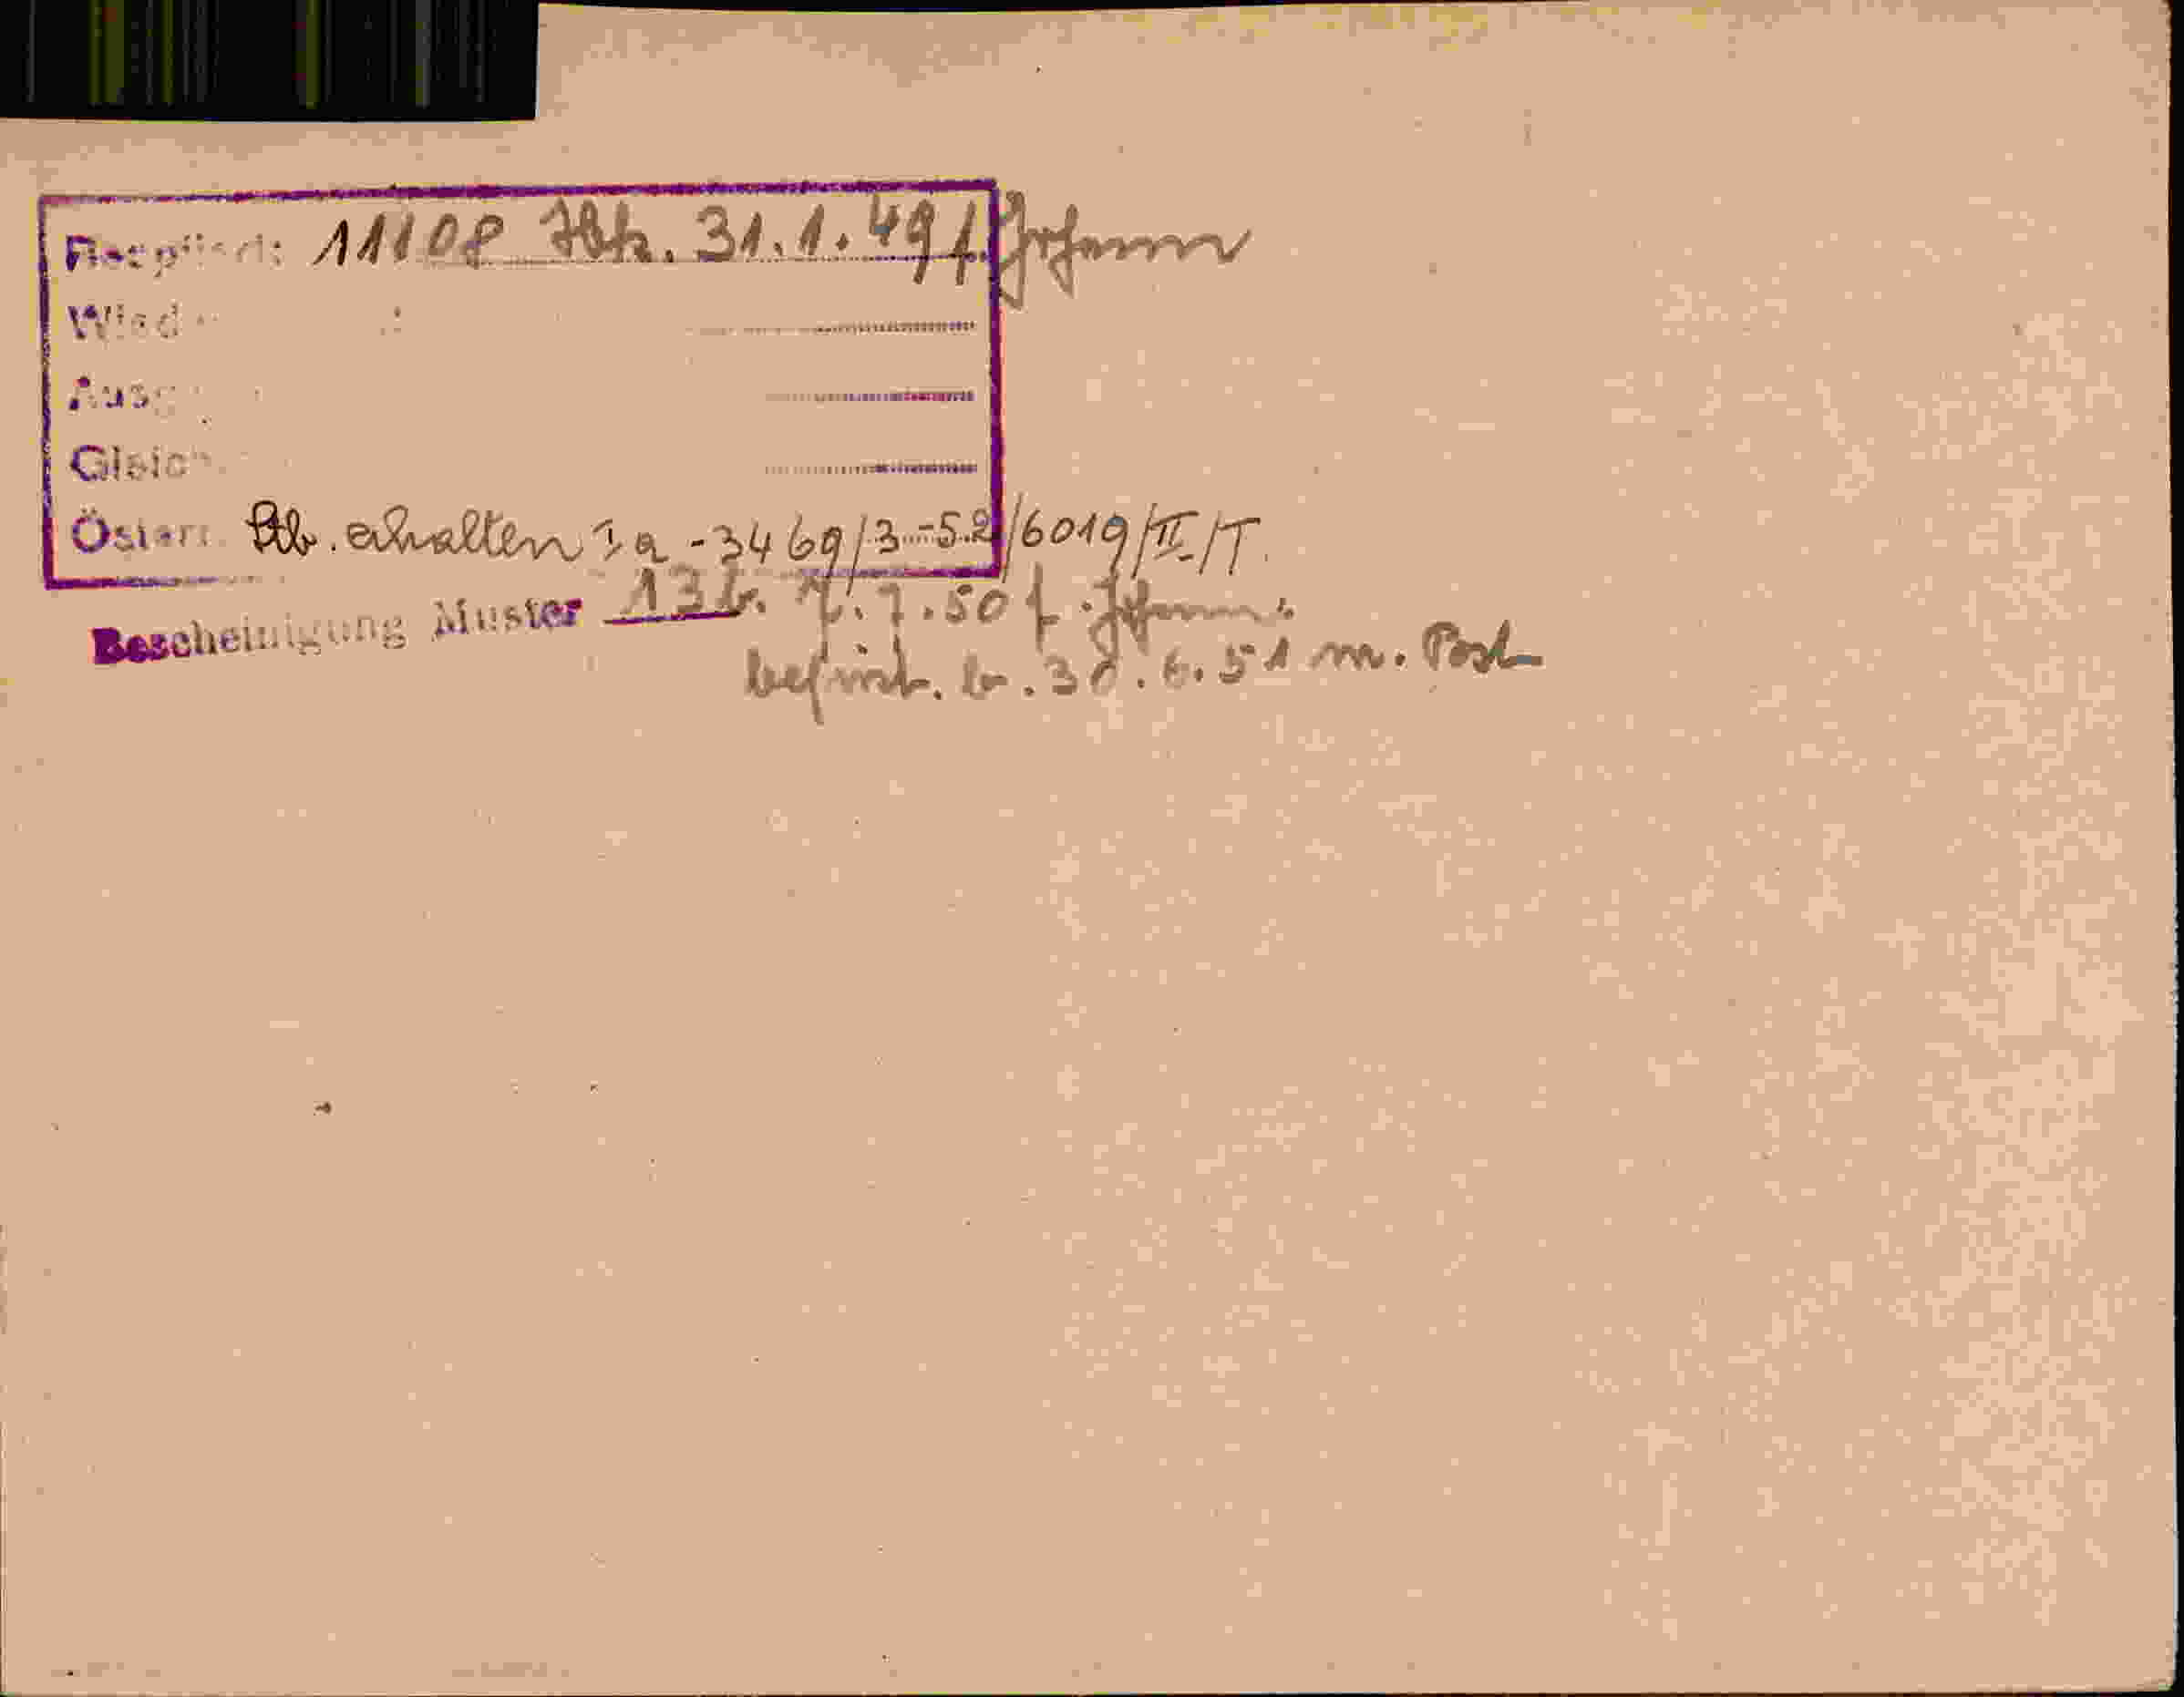 11108 Hbk. 31.1.49 f. Johann
Wied
Ausg
Gleich
Österr. Stb. erhalten Ia-3469/3-52/6019/II/T.
Bescheinigung Muster 13b. 7.7.50 f. Johann.
befrist. b. 30.6.51 m. Post